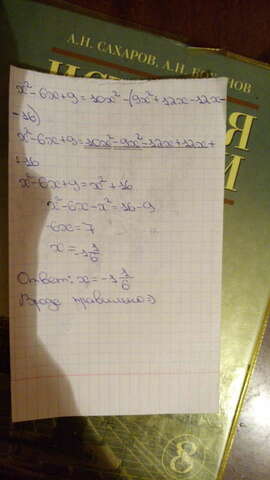 А.Н. САХАРОВ, А.Н. БО
x²-6x+9=10x²-(9x²+12x-12x-
-16)
x²-6x+9=10x²-9x²-12x+12x+
+16
x²-6x+9=x²+16
x²-6x-x²=16-9
-6x=7
x=-1 1/6
Ответ: x=-1 1/6
Вроде правильно)
8